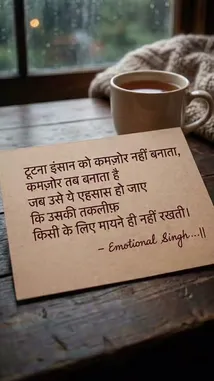 टूटना इंसान को कमज़ोर नहीं बनाता,
कमज़ोर तब बनाता है
जब उसे ये एहसास हो जाए
कि उसकी तकलीफ़
किसी के लिए मायने ही नहीं रखती।
– Emotional Singh...||